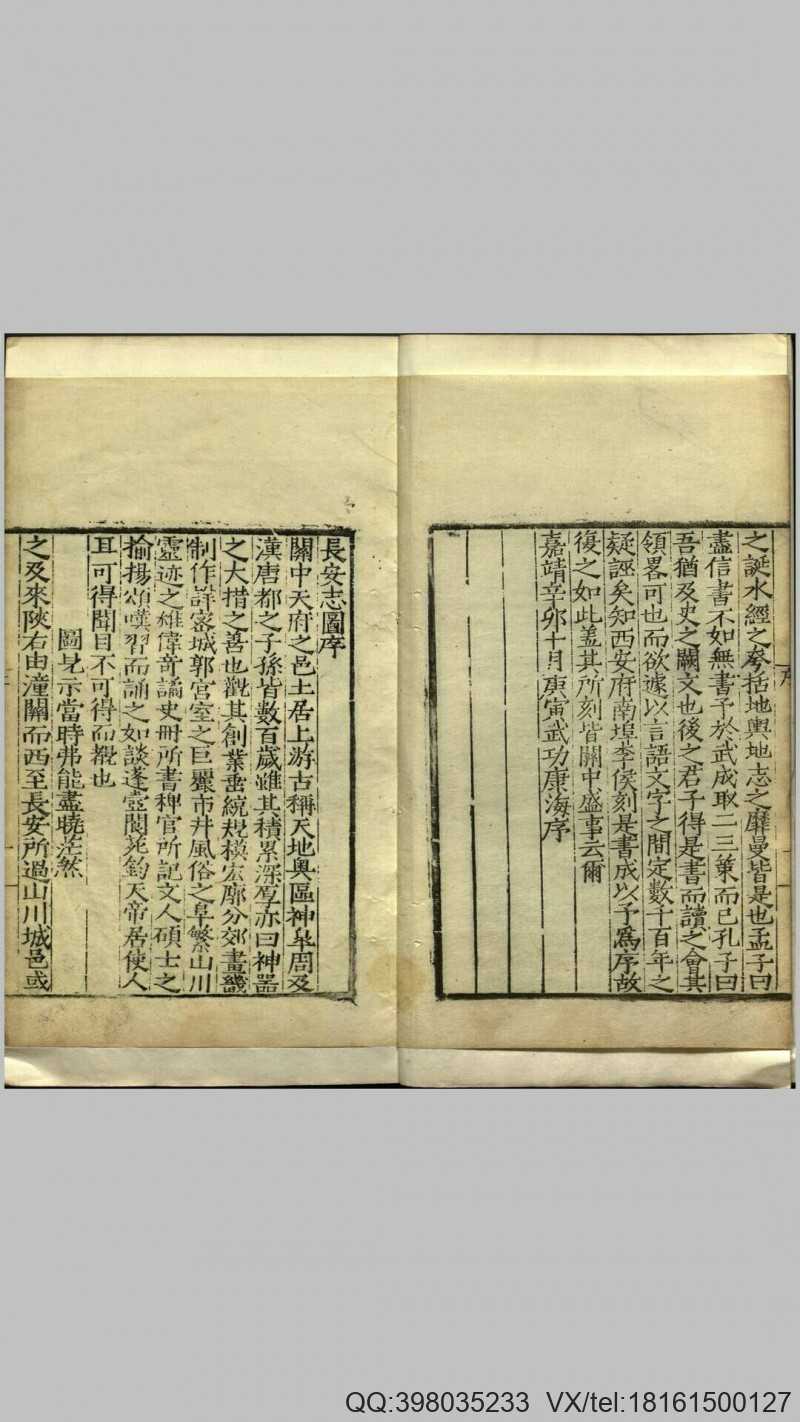 之誕水經之夸括地輿地志之靡曼皆是也孟子曰
盡信書不如無書予於武成取二三策而已孔子曰
吾猶及史之闕文也後之君子得是書而讀之會其
領畧可也而欲據以言語文字之間定數千百年之
疑誣矣知西安府南埠李侯刻是書成以予爲序故
復之如此蓋其所刻皆關中盛事云爾
嘉靖辛卯十月庚寅武功康海序
長安志圖序
關中天府之邑土居上游古稱天地奥區神臯周及
漢唐都之子孫皆數百歲雖其積累深厚亦曰神器
之大措之善也觀其創業垂統規模宏廓分郊畫畿
制作詳密城郭宫室之巨麗市井風俗之阜繁山川
靈迹之雄偉奇譎史冊所書稗官所記文人碩士之
揄揚頌嘆習而誦之如談蓬壺閬苑鈞天帝居使人
耳可得聞目不可得而覩也
圖見示當時弗能盡曉茫然
之及來陝右由潼關而西至長安所過山川城邑或
QQ:398035233 VX/tel:18161500127